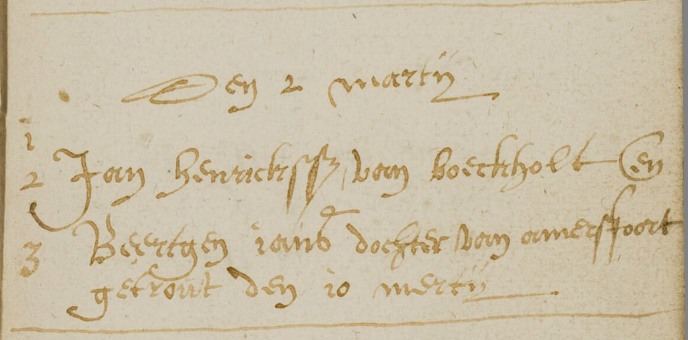 Den 2 martij
1
2 Jan henrickssz van boeckholt en
3 Beertgen jans dochter van amersfoort
getrout den 10 mertij